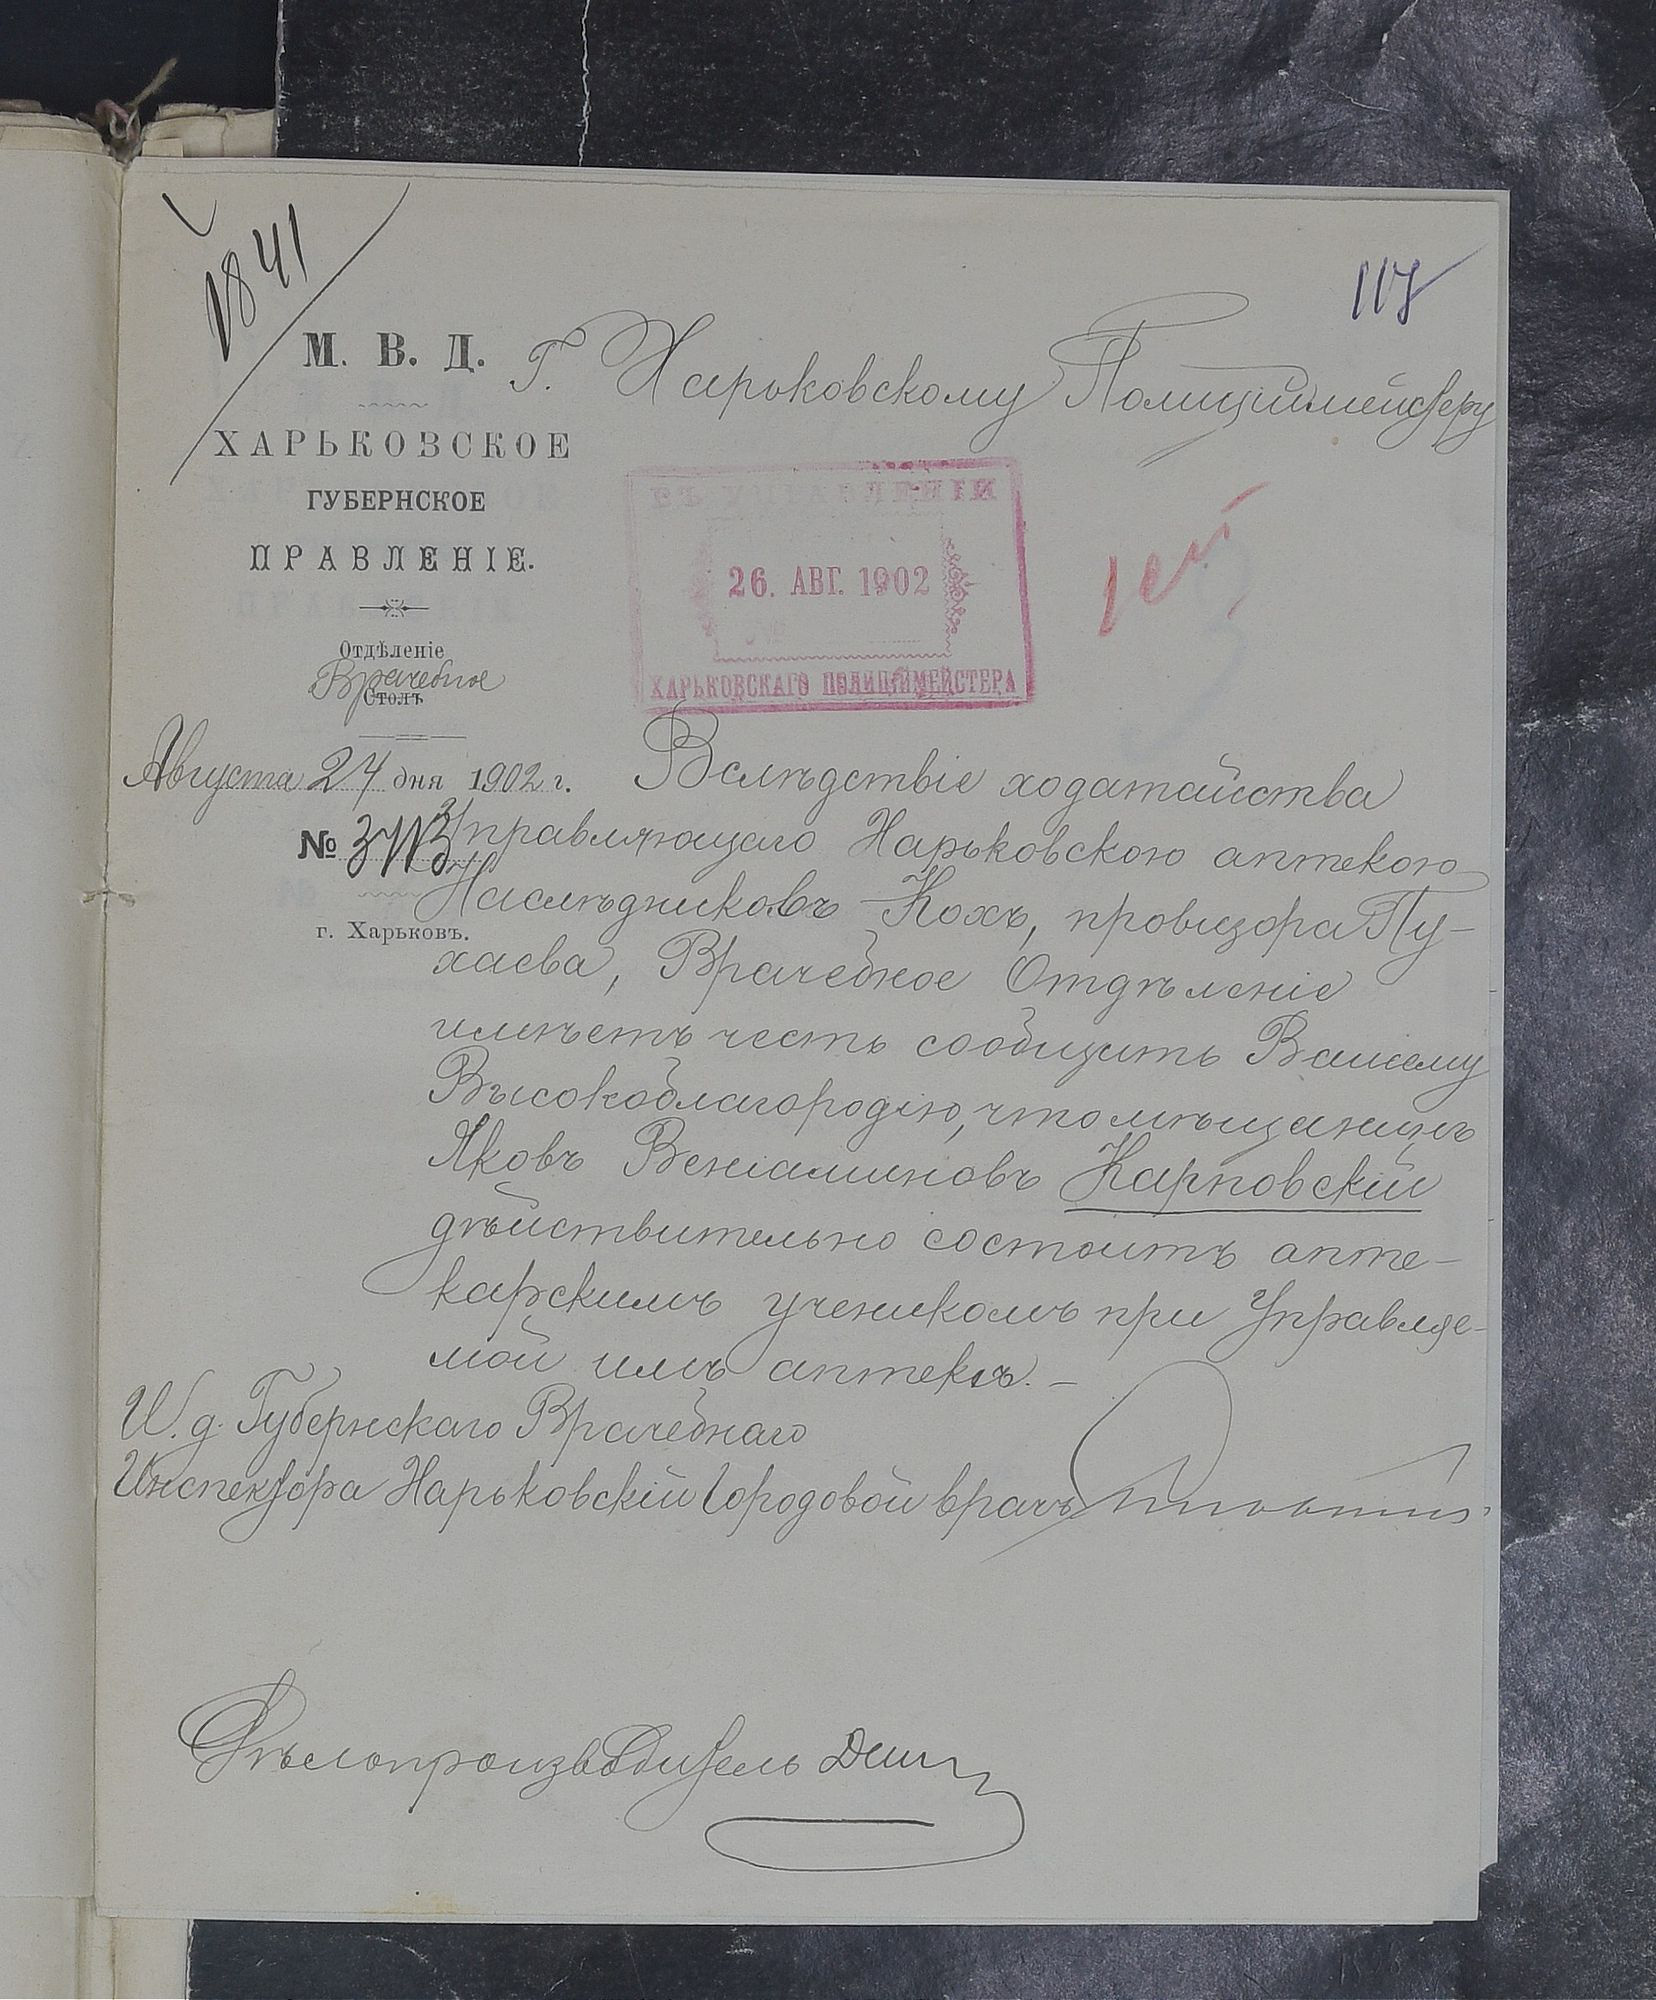 1841
117
М. В. Д.
ХАРЬКОВСКОЕ
ГУБЕРНСКОЕ
ПРАВЛЕНІЕ.
Отдѣленіе
Врачебное
Столъ
Августа 24 дня 1902 г.
№
г. Харьковъ.
Г. Харьковскому Полицiймейстеру
ВЪ УПРАВЛЕНІИ
26. АВГ. 1902
ХАРЬКОВСКАГО ПОЛИЦІЙМЕЙСТЕРА
Вслѣдствіе ходатайства
Управляющаго Харьковскою аптекою
Наслѣдниковъ Кохъ, провизора Пу-
хаева, Врачебное Отдѣленіе
имѣетъ честь сообщить Вашему
Высокоблагородію, что мѣщанинъ
Яковъ Веніаминовъ Карповскій
дѣйствительно состоитъ апте-
карскимъ ученикомъ при Управляе-
мой имъ аптекѣ. –
И. д. Губернскаго Врачебнаго
Инспектора Харьковскій Городовой врачъ
Дѣлопроизводитель